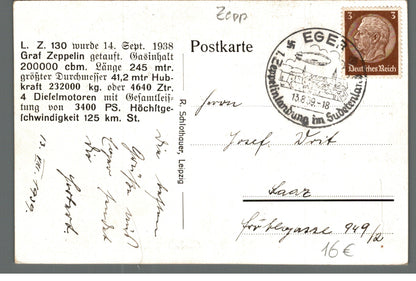 Zepp
L. Z. 130 wurde 14. Sept. 1938
Graf Zeppelin getauft. Gasinhalt
200000 cbm. Länge 245 mtr.
größter Durchmesser 41,2 mtr Hub-
kraft 232000 kg. oder 4640 Ztr.
4 Dieselmotoren mit Gesamtleis-
tung von 3400 PS. Höchstge-
schwindigkeit 125 km. St.
R. Schlolhauer, Leipzig
Postkarte
EGER
1. Zeppelinlandung im Sudetenland
13.8.39-18
3 3
Deutsches Reich
Die besten
Grüße aus
Eger sendet
Dir
13. VIII. 1939.
Herrn
Josef
949/2
16€